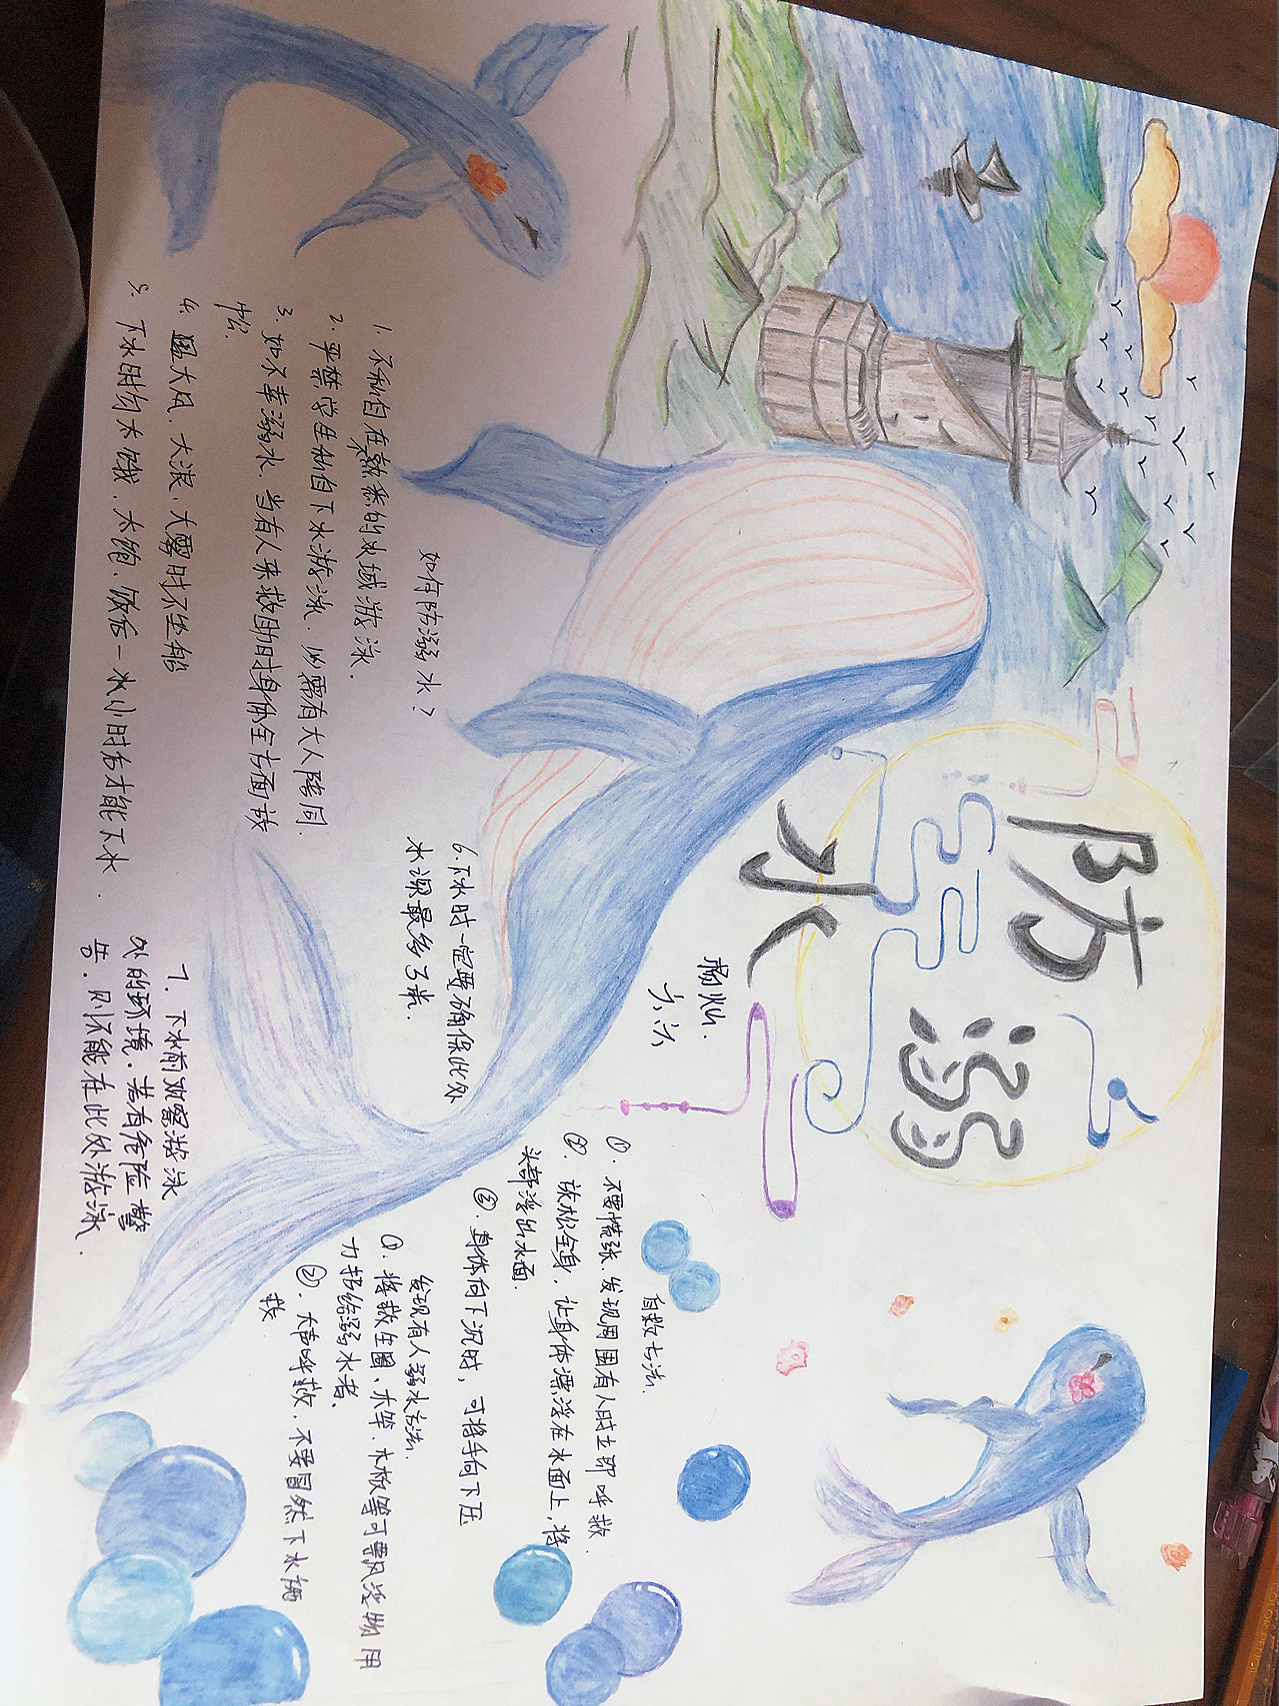 防溺
水
杨灿.
六、六
如何防溺水?
1. 不私自在熟悉的水域游泳.
2. 严禁学生私自下水游泳,必需有大人陪同.
3. 如不幸溺水,当有人来救助时身体全方面放
松.
4. 遇大风、大浪、大雾时不坐船
5. 下水时勿太饿、太饱.饭后一水小时后才能下水.
6.下水时一定要确保此处
水深最多3米.
7. 下水前观察游泳
处的环境,若有危险警
告,则不能在此处游泳.
自救方法.
①. 不要慌张.发现周围有人时立即呼救.
②. 放松全身,让身体漂浮在水面上,将
头部浮出水面.
③. 身体向下沉时,可将手向下压
发现有人溺水方法:
①. 将救生圈、木竿、木板等可飘浮物用
力抛给溺水者.
②. 大声呼救,不要冒然下水施
救